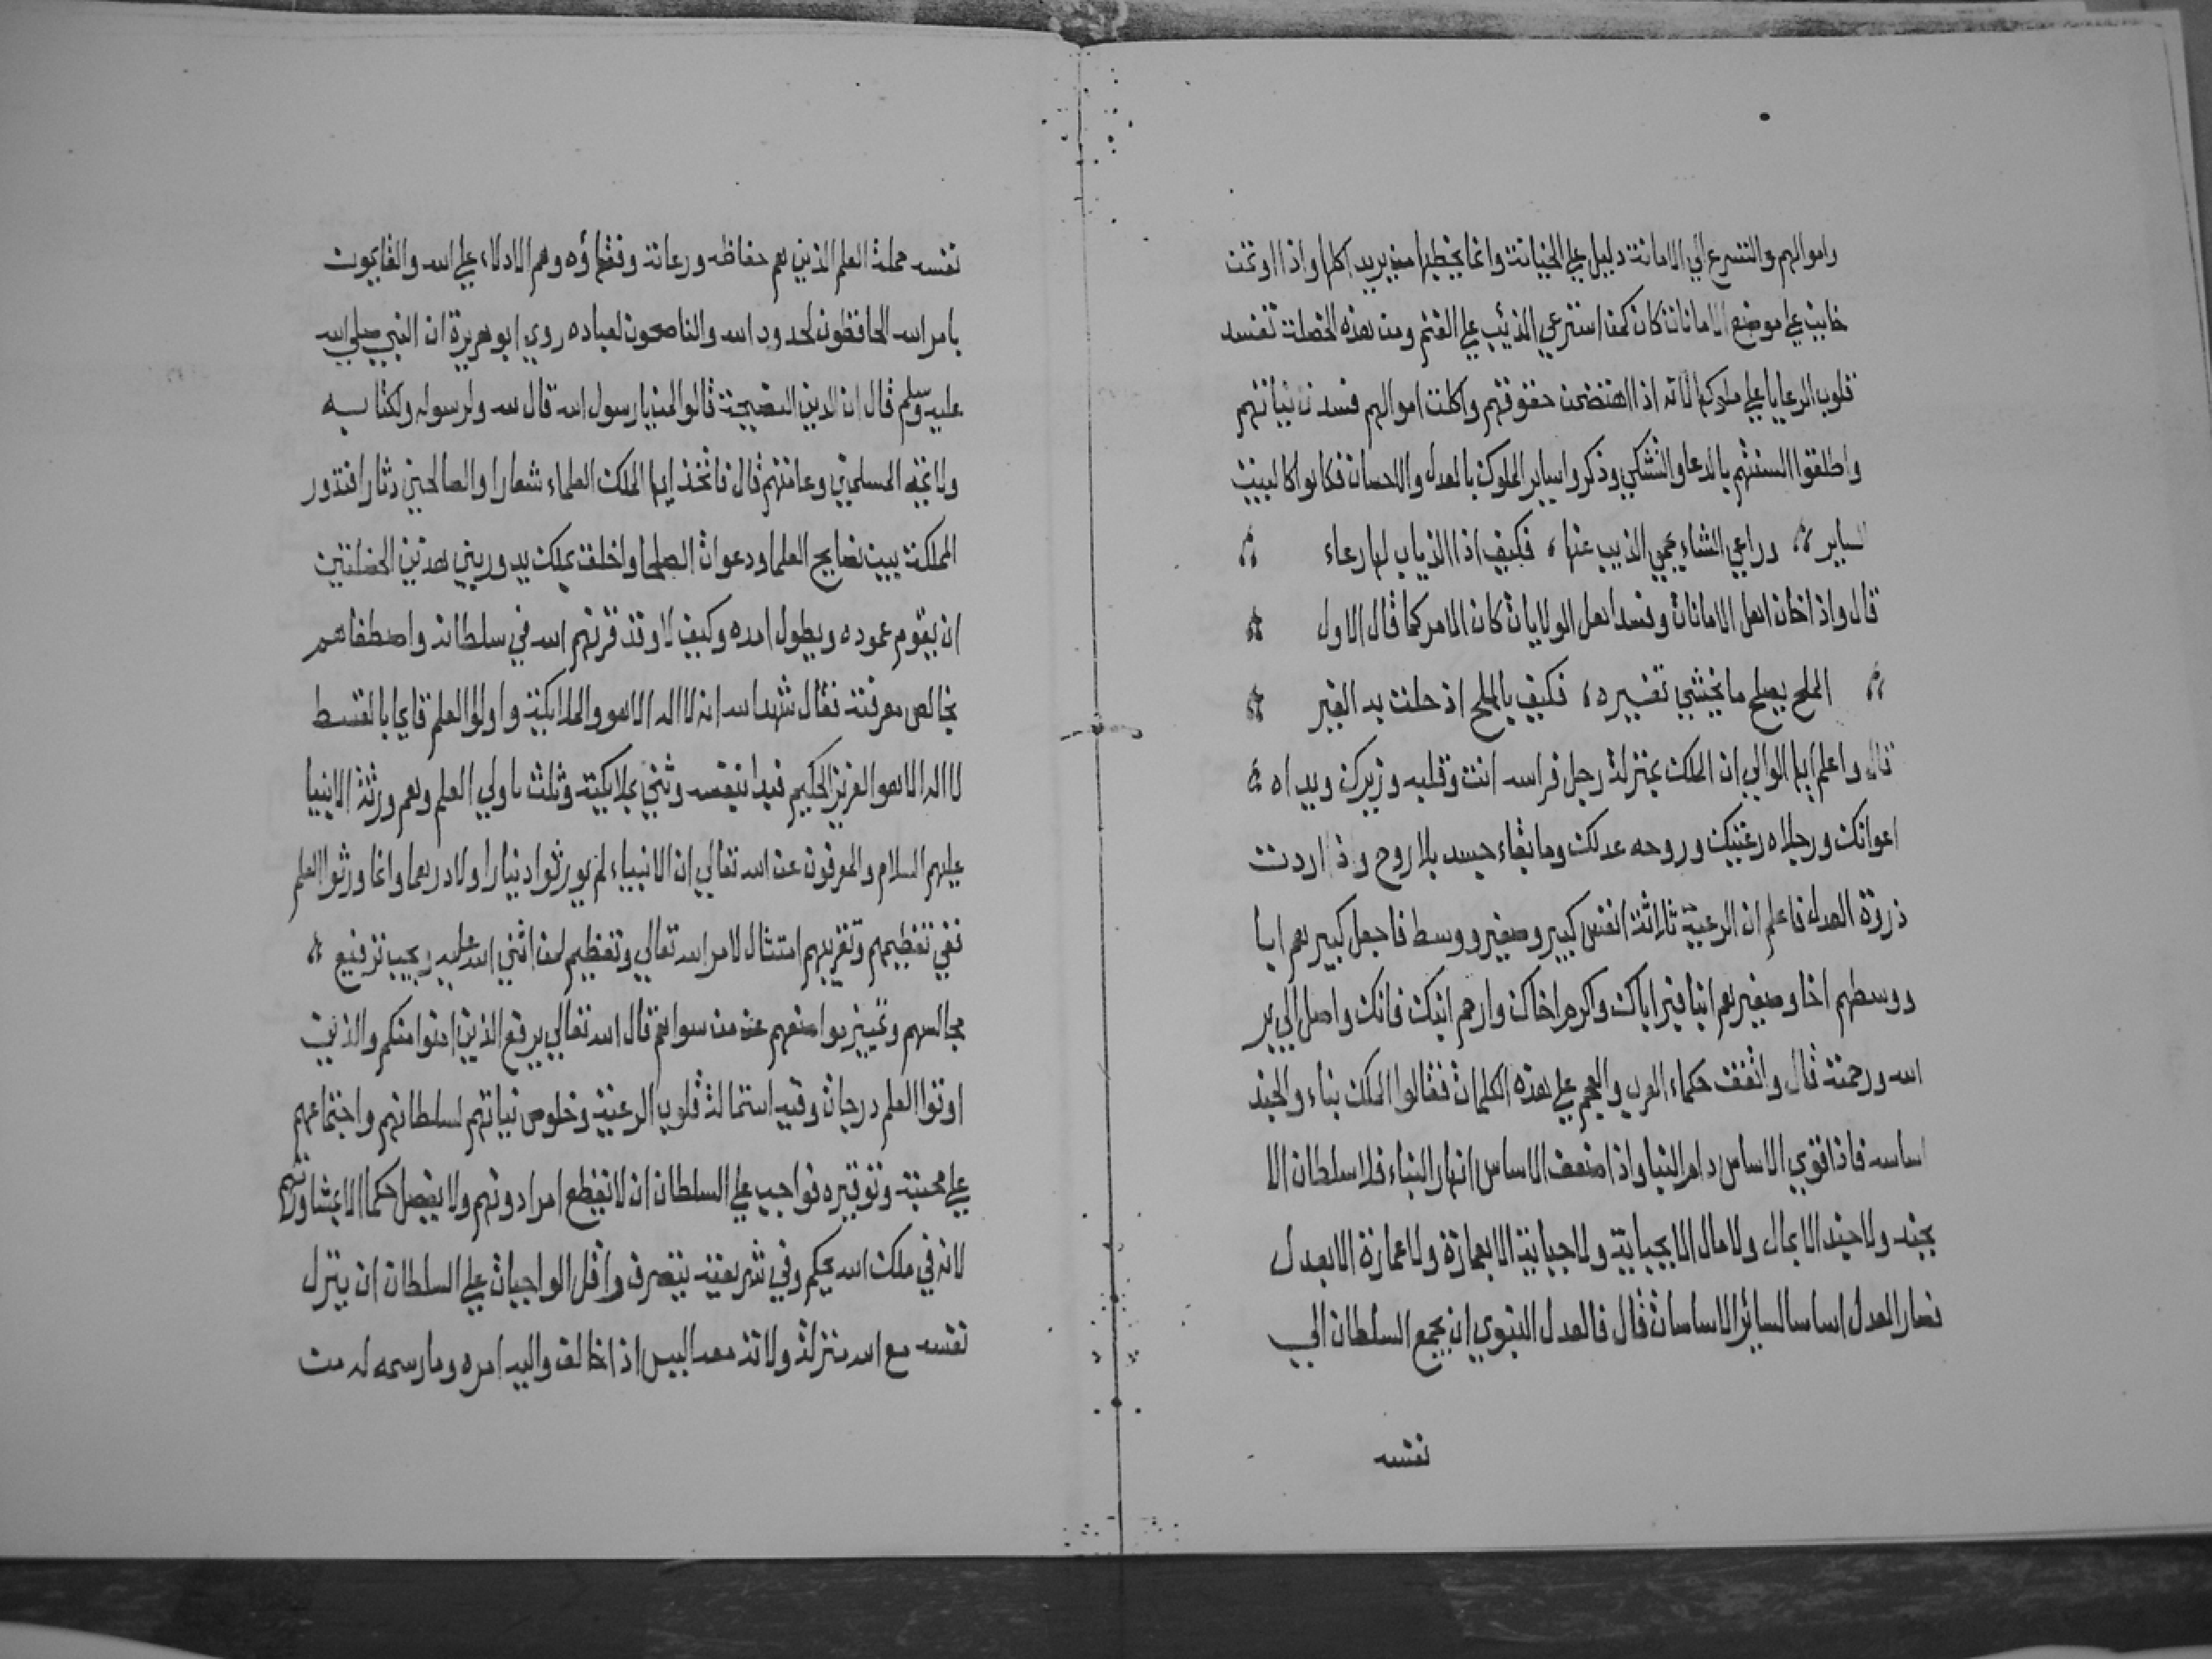 واموالهم والتسرع الي الامانة دليل علي الخيانة وانما يخطبها من يريد اكلها واذا اوتمن
خاين علي موضع الامانات كان كمن استرعي الذئب علي الغنم ومن هذه الخصلة تفسد
قلوب الرعايا علي ملوكها لانه اذا اهتضمت حقوقهم واكلت اموالهم فسدت نياتهم
واطلقوا السنتهم بالدعا والتشكي وذكروا ساير الملوك بالعدل والاحسان فكانوا كالبيت
الساير وراعي الشاء يحمي الذيب عنها فكيف اذا الذياب لها رعاء
قال واذا خان اهل الامانات وفسد اهل الولايات كان الامر كما قال الاول
الملح يصلح ما يخشي تغييره فكيف بالملح اذ حلت به الغير
قال واعلم ايها الوالي ان الملك بمنزلة رجل فراسه انت وقلبه وزيرك ويداه
اعوانك ورجلاه رعيتك وروحه عدلك وما بقاء جسد بلا روح واذا اردت
ذروة العدل فاعلم ان الرعية ثلاثة انفس كبير وصغير ووسط فاجعل كبيرهم ابا
ووسطهم اخا وصغيرهم ابنا فبر اباك واكرم اخاك وارحم ابنك فانك واصل الي بر
الله ورحمته قال واتفقت حكماء العرب والعجم علي هذه الكلمات فقالوا الملك بناء والجند
اساسه فاذا قوي الاساس دام البنا واذا ضعف الاساس انهار البناء فلا سلطان الا
بجند ولا جند الا بمال ولا مال الا بجباية ولا جباية الا بعمارة ولا عمارة الا بعدل
فصار العدل اساسا لسائر الاساسات قال فالعدل النبوي ان يجمع السلطان الي
نفسه
نفسه حملة العلم الذين هم حفاظه ورعاته وفقهاؤه وهم الادلاء علي الله والقايمون
بامر الله الحافظون لحدود الله والناصحون لعباده روي ابو هريرة ان النبي صلي الله
عليه وسلم قال ان الدين النصيحة قالوا لمن يا رسول الله قال لله ولرسوله ولكتابه
ولائمة المسلمين وعامتهم قال فاتخذ ايها الملك العلماء شعارا والصالحين دثارا فتدور
المملكة بين نصايح العلما ودعوات الصلحا واخلق بملك يدور بين هذين الخصلتين
ان يقوم عموده ويطول امده وكيف لا وقد قرنهم الله في سلطانه واصطفاهم
بخالص معرفته فقال شهد الله انه لا اله الا هو والملايكة واولوا العلم قايما بالقسط
لا اله الا هو العزيز الحكيم فبدا بنفسه وثني بملايكته وثلث باولي العلم وهم ورثة الانبيا
عليهم السلام والموقعون عن الله تعالي ان الانبياء لم يورثوا دينارا ولا درهما وانما ورثوا العلم
ففي تعظيمهم وتقريبهم امتثال لامر الله تعالي وتعظيم لمن اثني الله عليه ويجب ترفيع
مجالسهم وتمييز مواضعهم عن من سواهم قال الله تعالي يرفع الذين امنوا منكم والذين
اوتوا العلم درجات وفيه استمالة قلوب الرعية وخلوص نياتهم لسلطانهم واجتماعهم
علي محبته وتوقيره فواجب علي السلطان ان لا يقطع امرا دونهم ولا يفصل حكما الا بمشاورتهم
لانه في ملك الله يحكم وفي شريعته يتصرف واقل الواجبات علي السلطان ان ينزل
نفسه مع الله منزلة ولاته معه اليس اذا خالف واليه امره وما رسمه له من